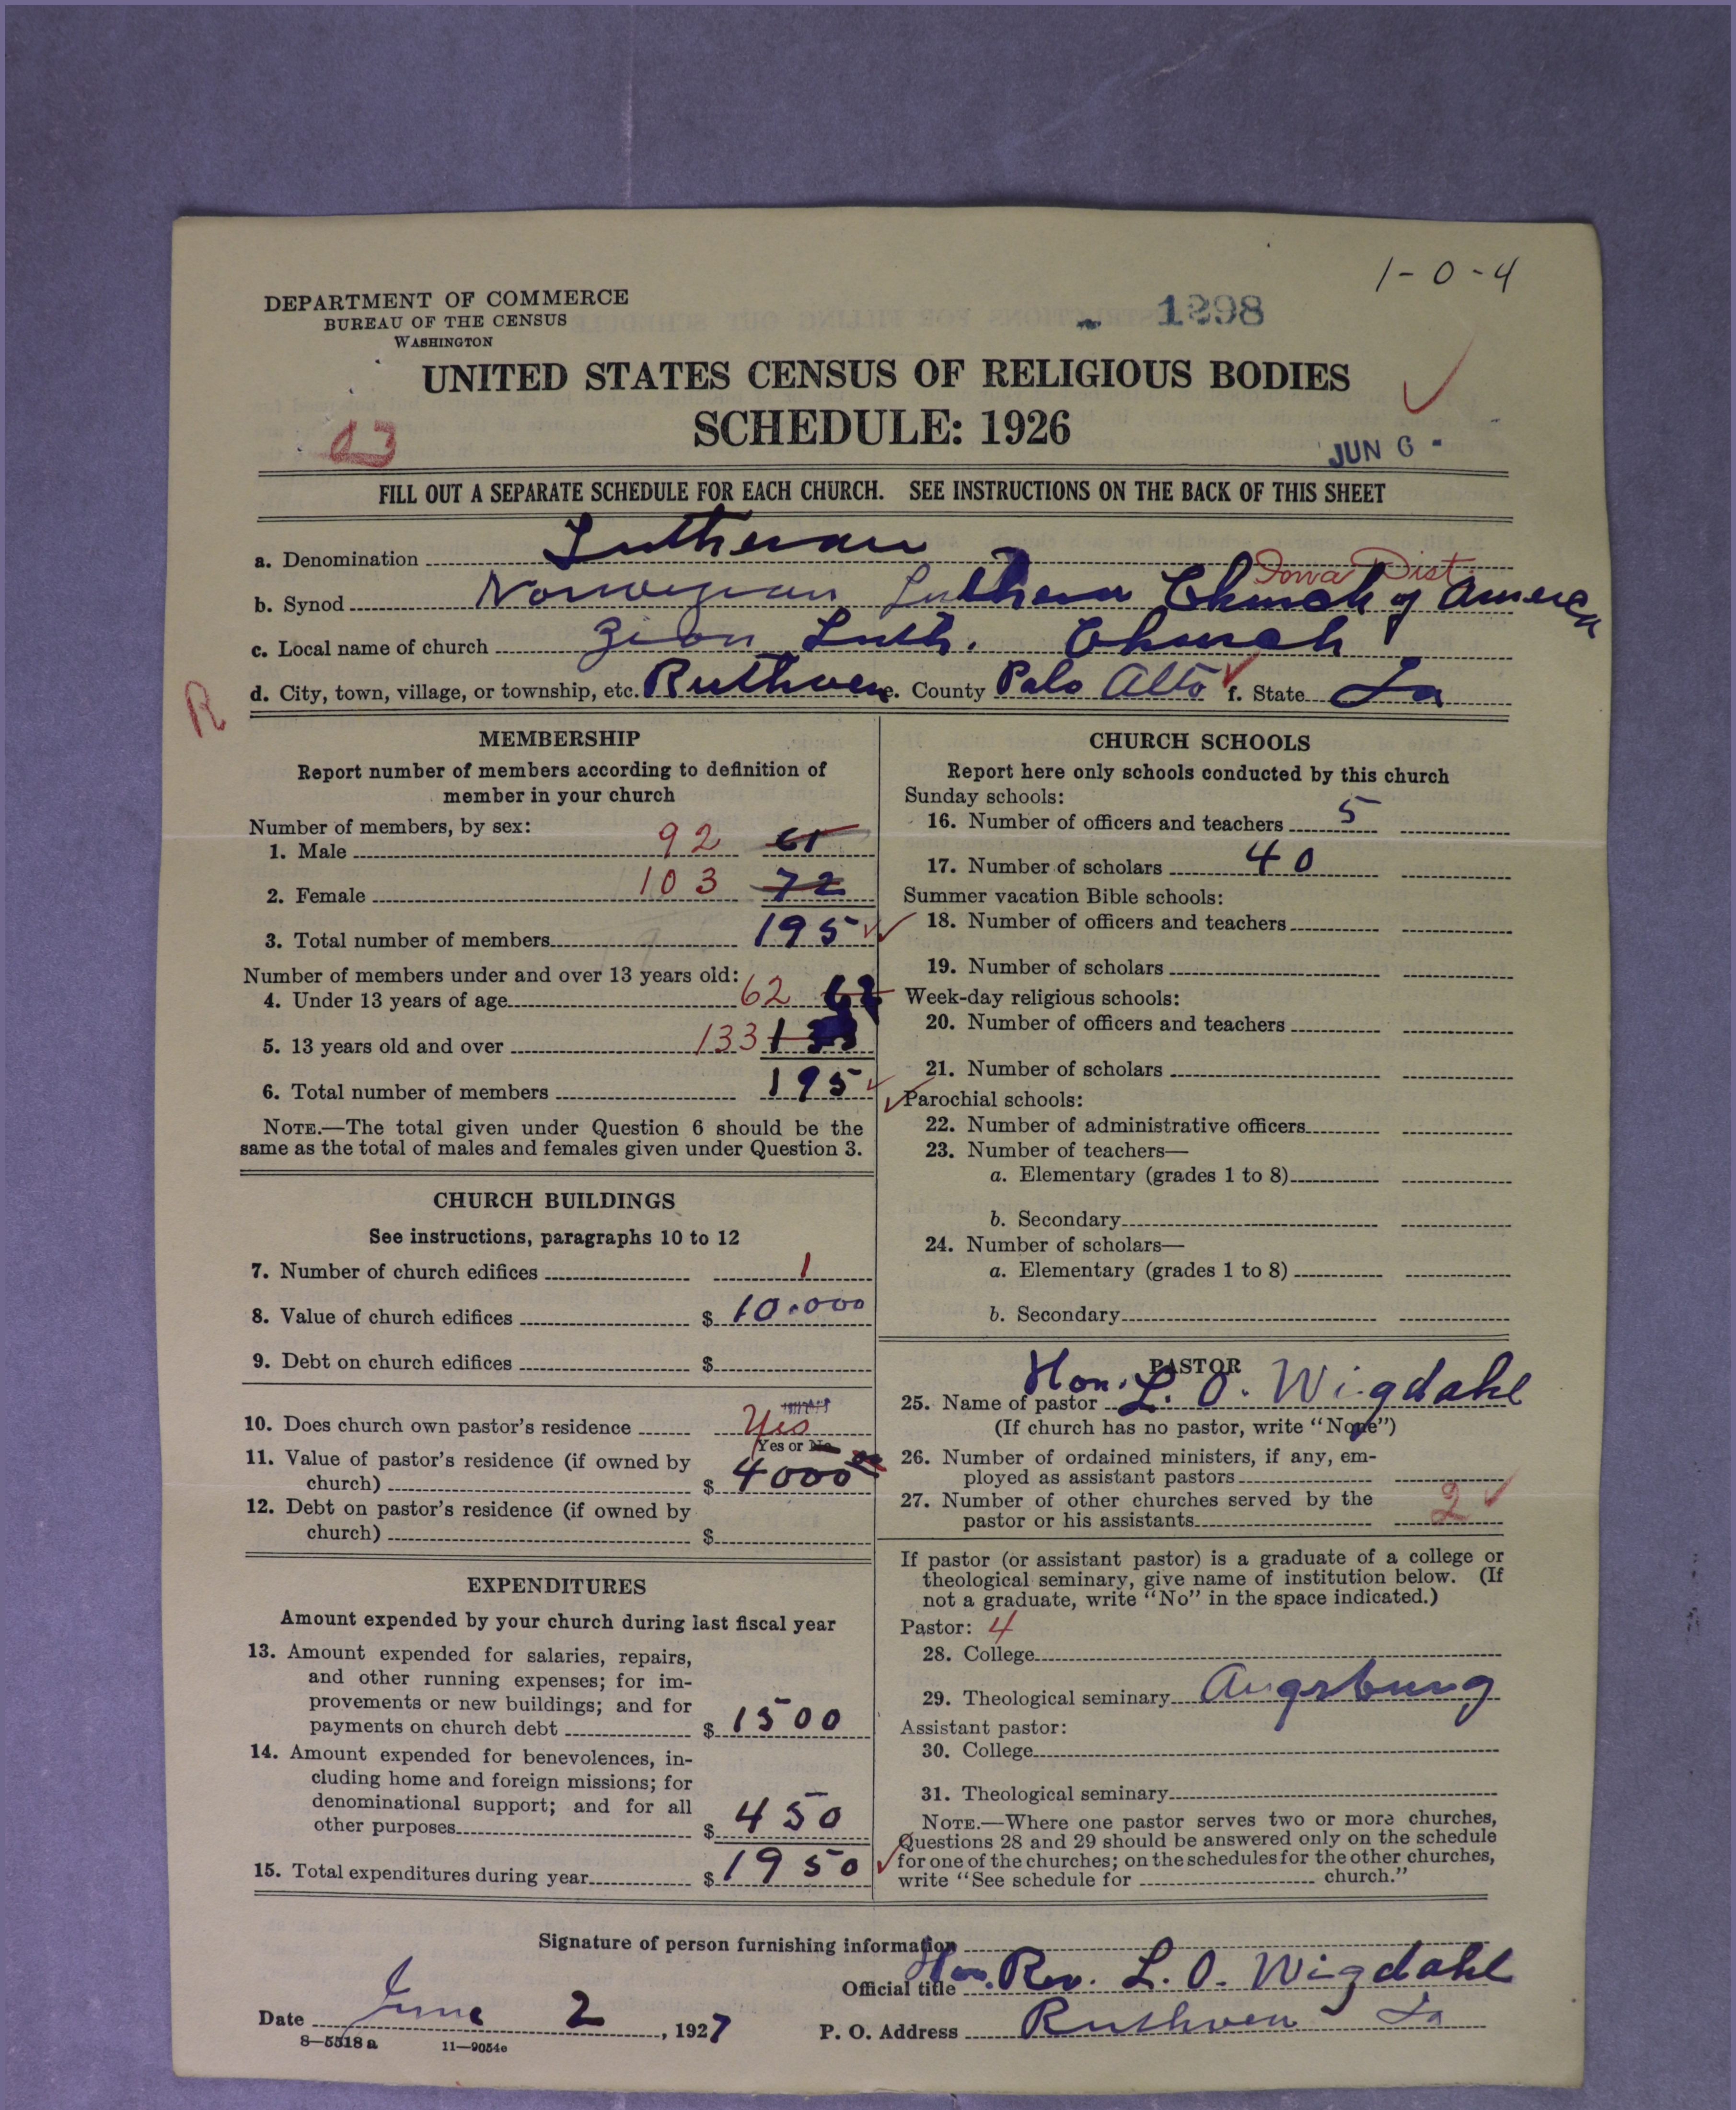 1-0-4
DEPARTMENT OF COMMERCE
BUREAU OF THE CENSUS
WASHINGTON
1298
UNITED STATES CENSUS OF RELIGIOUS BODIES
SCHEDULE: 1926
03
JUN 6 -
FILL OUT A SEPARATE SCHEDULE FOR EACH CHURCH. SEE INSTRUCTIONS ON THE BACK OF THIS SHEET
a. Denomination Lutheran
Iowa Dist.
b. Synod Norwegian Lutheran Church of America
c. Local name of church Zion Luth. Church
R
d. City, town, village, or township, etc. Ruthven e. County Palo Alto f. State Ia
MEMBERSHIP
Report number of members according to definition of
member in your church
Number of members, by sex:
1. Male 92 61
2. Female 103 72
3. Total number of members 195
Number of members under and over 13 years old:
4. Under 13 years of age 62 62
5. 13 years old and over 133
6. Total number of members 195
NOTE.—The total given under Question 6 should be the
same as the total of males and females given under Question 3.
CHURCH BUILDINGS
See instructions, paragraphs 10 to 12
7. Number of church edifices 1
8. Value of church edifices $ 10.000
9. Debt on church edifices $
10. Does church own pastor's residence Yes
Yes or No
11. Value of pastor's residence (if owned by
church) $ 4000
12. Debt on pastor's residence (if owned by
church) $
EXPENDITURES
Amount expended by your church during last fiscal year
13. Amount expended for salaries, repairs,
and other running expenses; for im-
provements or new buildings; and for
payments on church debt $ 1500
14. Amount expended for benevolences, in-
cluding home and foreign missions; for
denominational support; and for all
other purposes $ 450
15. Total expenditures during year $ 1950
CHURCH SCHOOLS
Report here only schools conducted by this church
Sunday schools:
16. Number of officers and teachers 5
17. Number of scholars 40
Summer vacation Bible schools:
18. Number of officers and teachers
19. Number of scholars
Week-day religious schools:
20. Number of officers and teachers
21. Number of scholars
Parochial schools:
22. Number of administrative officers
23. Number of teachers—
a. Elementary (grades 1 to 8)
b. Secondary
24. Number of scholars—
a. Elementary (grades 1 to 8)
b. Secondary
PASTOR
25. Name of pastor Hon. L. O. Wigdahl
(If church has no pastor, write "None")
26. Number of ordained ministers, if any, em-
ployed as assistant pastors
27. Number of other churches served by the
pastor or his assistants 2
If pastor (or assistant pastor) is a graduate of a college or
theological seminary, give name of institution below. (If
not a graduate, write "No" in the space indicated.)
Pastor: 4
28. College
29. Theological seminary Augsburg
Assistant pastor:
30. College
31. Theological seminary
NOTE.—Where one pastor serves two or more churches,
Questions 28 and 29 should be answered only on the schedule
for one of the churches; on the schedules for the other churches,
write "See schedule for church."
Signature of person furnishing information
Official title Hon. Rev. L. O. Wigdahl
Date June 2, 1927 P. O. Address Ruthven Ia
8—5518 a 11—9054e